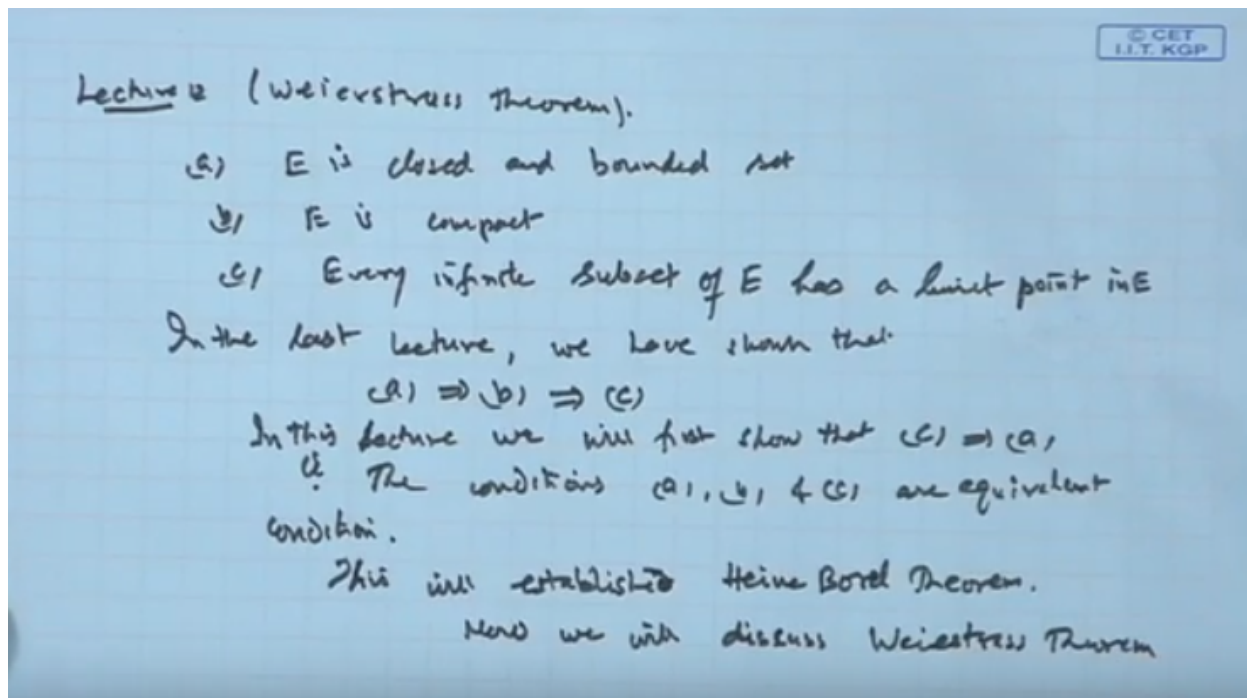 © CET
I.I.T. KGP
Lecture 12 (Weierstrass Theorem).
(a) E is closed and bounded set
(b) E is compact
(c) Every infinite subset of E has a limit point in E
In the last lecture, we have shown that
(a) ⇒ (b) ⇒ (c)
In this lecture we will first show that (c) ⇒ (a)
The conditions (a), (b) & (c) are equivalent
condition.
This will established Heine Borel Theorem.
Now we will discuss Weiestrass Theorem